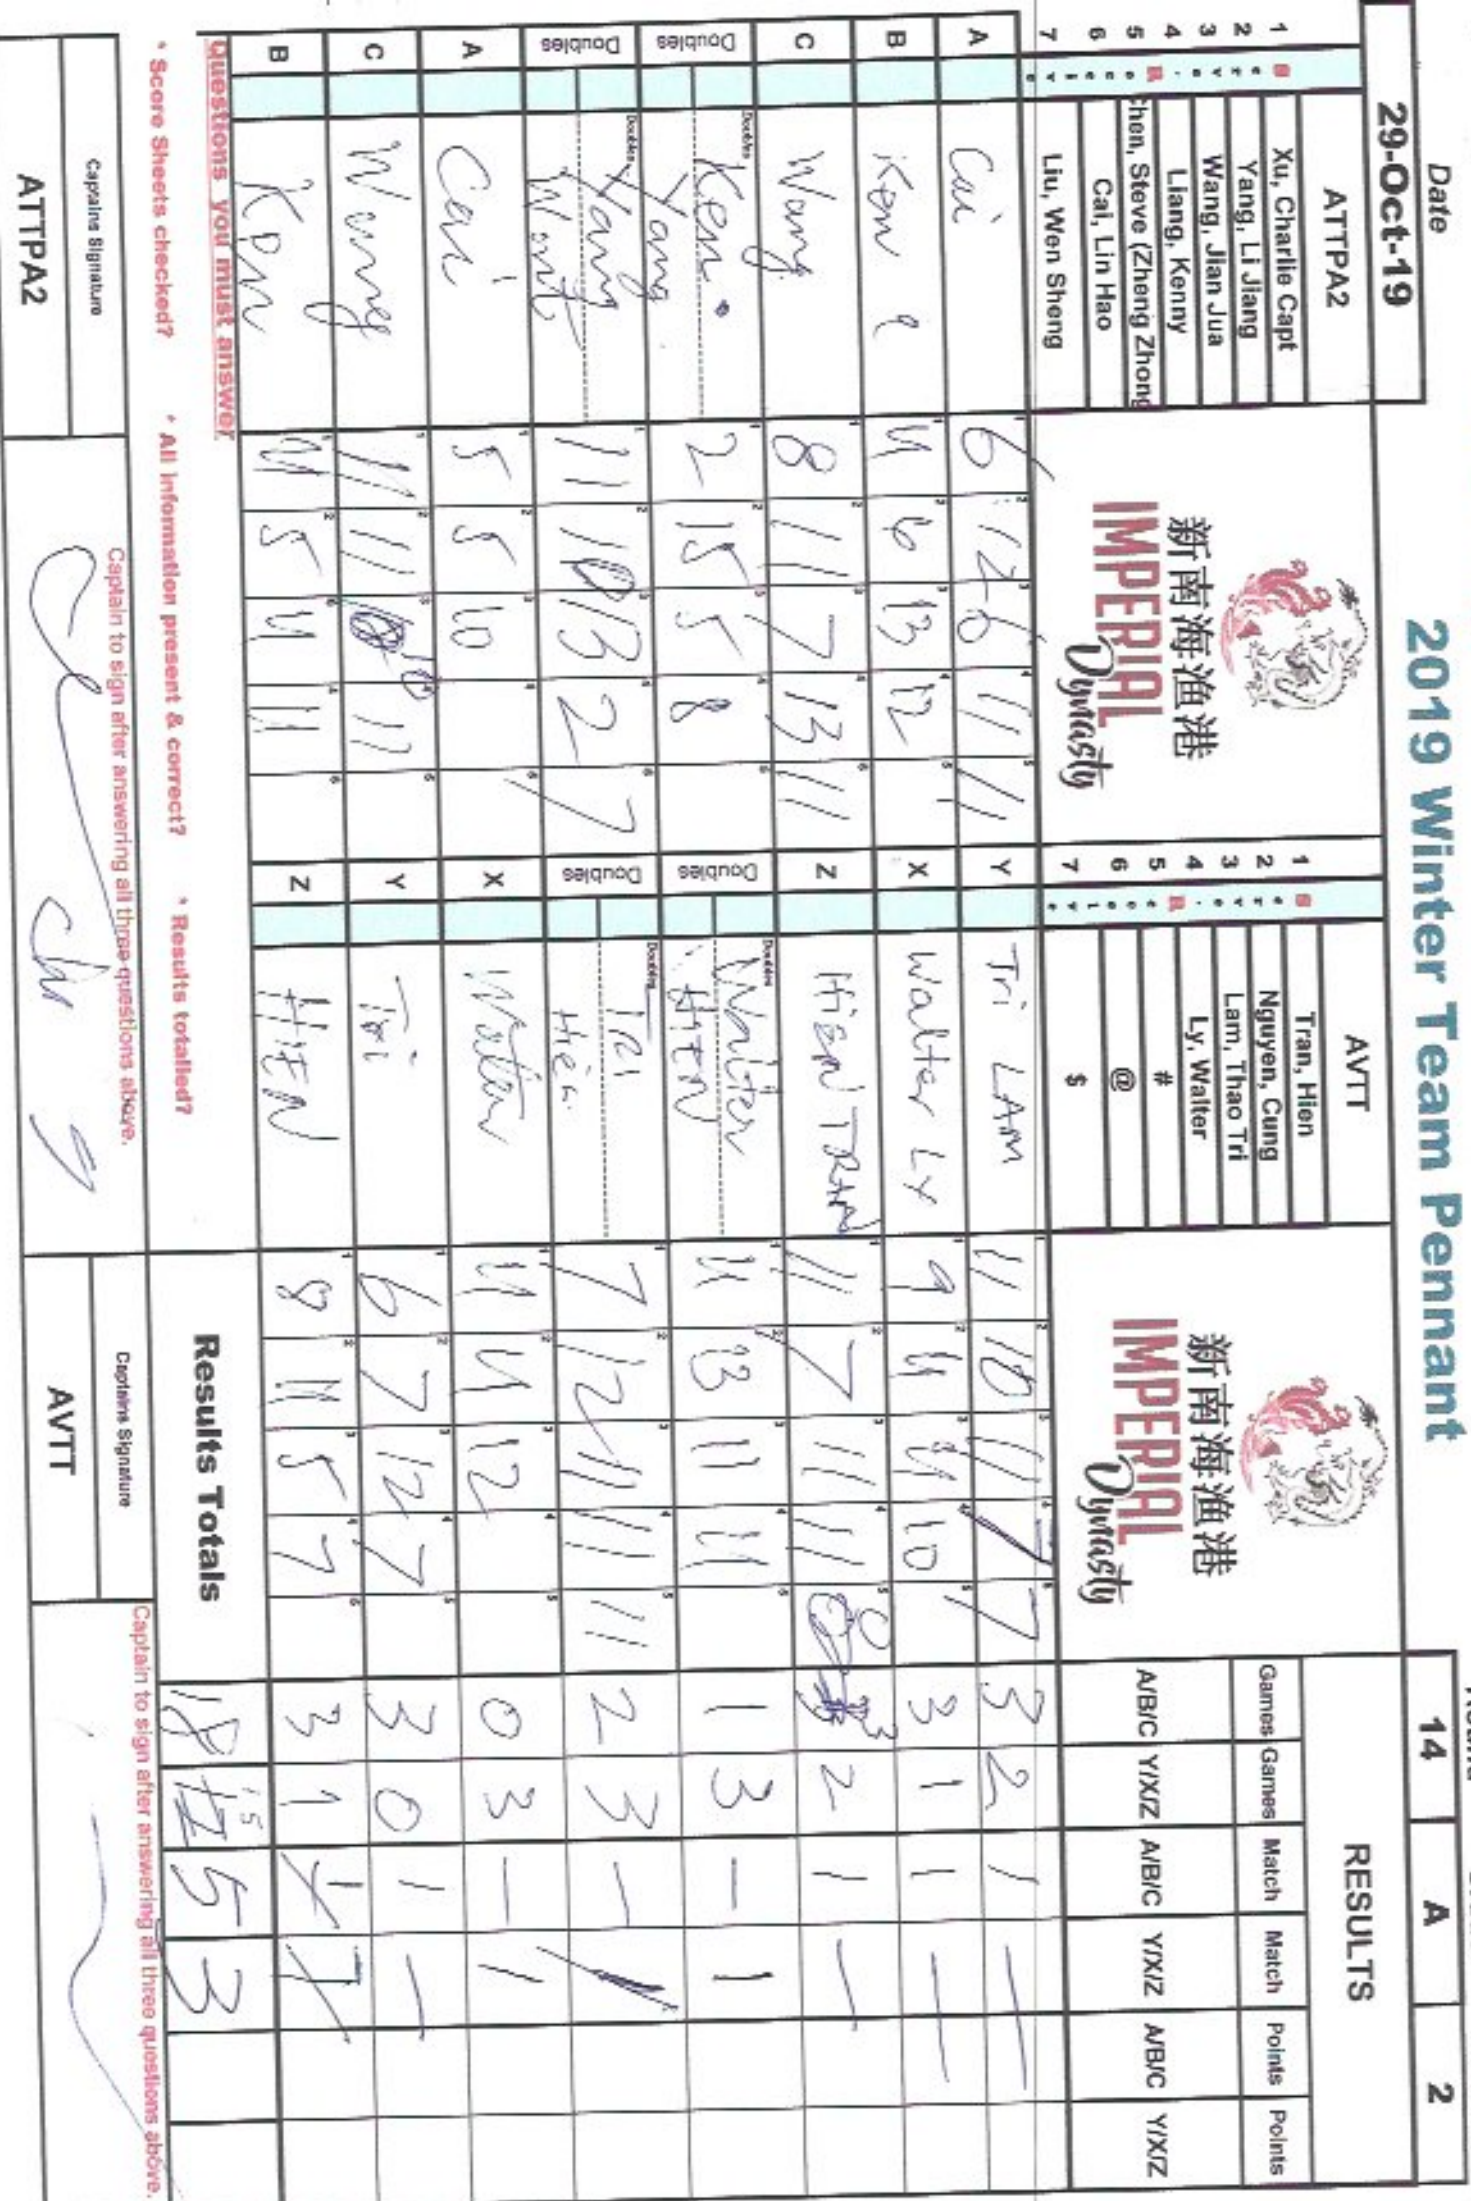 Date
2019 Winter Team Pennant
29-Oct-19
14 A 2
ATTPA2
AVTT
RESULTS
1 Xu, Charlie Capt
2 Yang, Li Jiang
3 Wang, Jian Jua
4 Liang, Kenny
5 Chen, Steve (Zheng Zhong
6 Cai, Lin Hao
7 Liu, Wen Sheng
新南海渔港
IMPERIAL
Dynasty
1 Tran, Hien
2 Nguyen, Cung
3 Lam, Thao Tri
4 Ly, Walter
5 #
6 @
7 $
新南海渔港
IMPERIAL
Dynasty
Games Games Match Match Points Points
A/B/C Y/X/Z A/B/C Y/X/Z A/B/C Y/X/Z
A Cai 6 12 6 11 11 Y Tri LAM 11 10 11 7 7 3 2 1 –
B Ken 11 6 13 12 X Walter LY 9 11 11 10 3 1 1 –
C Wang 8 11 7 13 11 Z Hien TRAN 11 7 11 11 3 2 1 –
Doubles Ken Yang 2 15 5 8 Doubles Walter HIEN 11 13 11 11 1 3 – 1
Doubles Yang 11 10 13 2 7 Doubles TRI Hien 7 12 11 11 11 2 3 – 1
A Cai 5 5 10 X Walter 11 11 12 0 3 – 1
C Wang 11 11 10 11 Y Tri 6 7 12 7 3 0 1 –
B Ken 11 5 11 11 Z HIEN 8 11 5 7 3 1 1
Questions you must answer
* Score Sheets checked? * All information present & correct? * Results totalled?
Results Totals 18 15 5 3
Captains Signature
Captain to sign after answering all three questions above.
Captains Signature
Captain to sign after answering all three questions above.
ATTPA2
AVTT